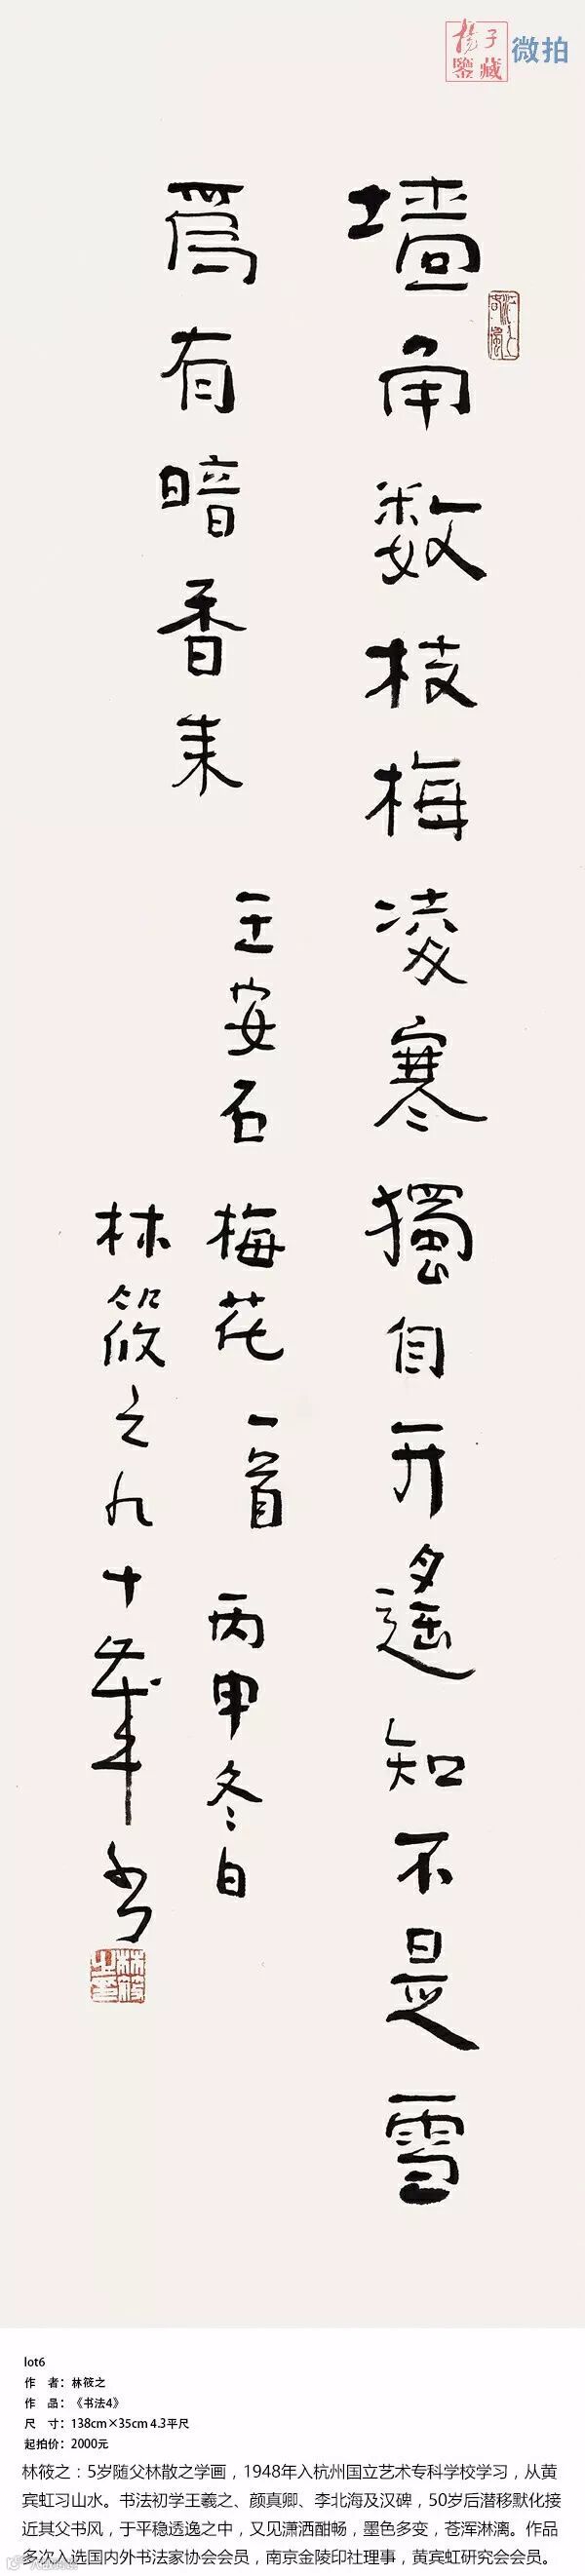 楊子
鑒藏
微拍
墙角数枝梅凌寒獨自开遙知不是雪
爲有暗香来
王安石梅花一首 丙申冬日
林筱之九十歲书
lot6
作 者：林筱之
作 品：《书法4》
尺 寸：138cm×35cm 4.3平尺
起拍价：2000元
林筱之：5岁随父林散之学画，1948年入杭州国立艺术专科学校学习，从黄
宾虹习山水。书法初学王羲之、颜真卿、李北海及汉碑，50岁后潜移默化接
近其父书风，于平稳透逸之中，又见潇洒酣畅，墨色多变，苍浑淋漓。作品
多次入选国内外书法家协会会员，南京金陵印社理事，黄宾虹研究会会员。